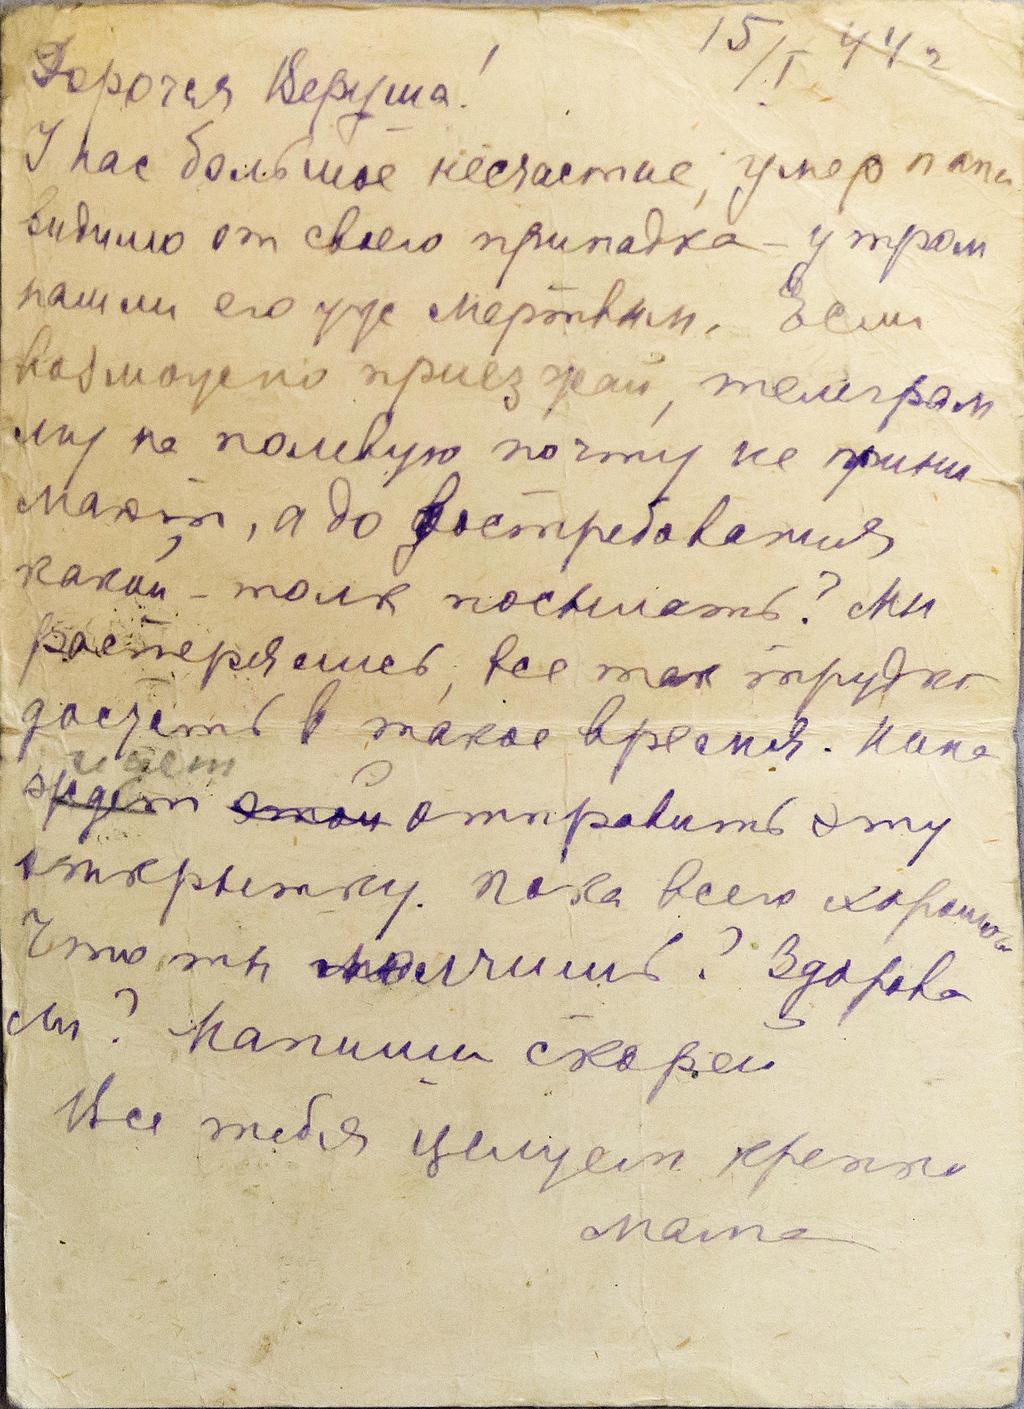 15/I 44 г
Дорогая Веруша!
У нас большое несчастие, умер папа
видимо от своего припадка – утром
нашли его уже мертвым. Если
возможно приезжай, телеграм
му на полевую почту не прини
мают, а до востребования
какой-толк посылать? Мы
растерялись, все так трудно
достать в такое время. Нина
идет
ждет этой отправить эту
открытку. Пока всего хорошего
Что ты молчишь? Здорова
ли? Напиши скорей
Все тебя целуем крепко
мама